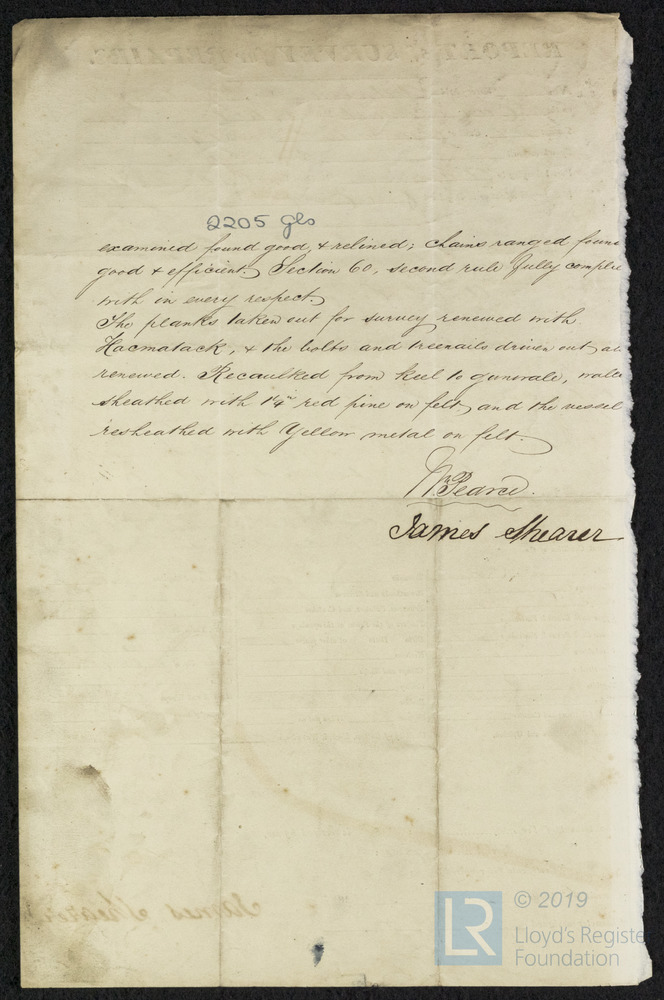 2205 Gls
examined found good, & relined; chains ranged foun
good & efficient, Section 60, second rule fully complie
with in every respect.
The planks taken out for survey renewed with
Hacmatack, & the bolts and treenails driven out a
renewed. Recaulked from keel to gunwale, wales
sheathed with 1¼" red pine on felt, and the vessel
resheathed with Yellow metal on felt.
Wm Pearce.
James Shearer
© 2019
LR
Lloyd's Registe
Foundation